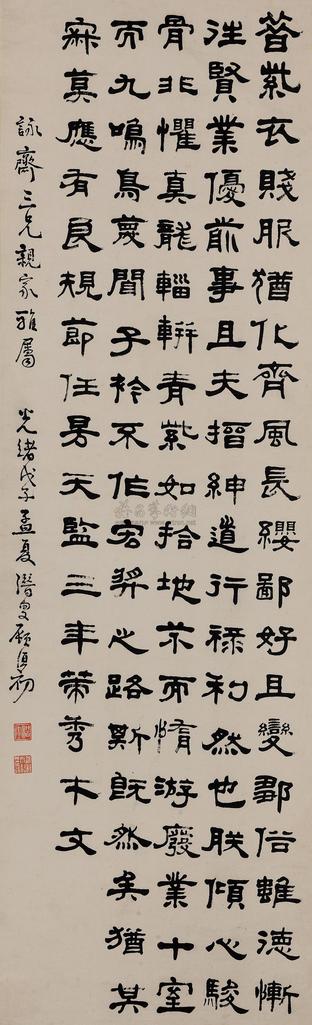 昔紫衣賤服猶化齊風長纓鄙好且變鄒俗雖德慚
往賢業優前事且夫搢紳道行祿利然也朕傾心駿
骨非懼真龍輜軿青紫如拾地芥而惰游廢業十室
而九鳴鳥蔑聞子衿不作宏獎之路斯既然矣猶其
寂莫應有良規節任昉天監三年策秀才文
詠齋三兄親家雅屬 光緒戊子孟夏潛叟顧復初